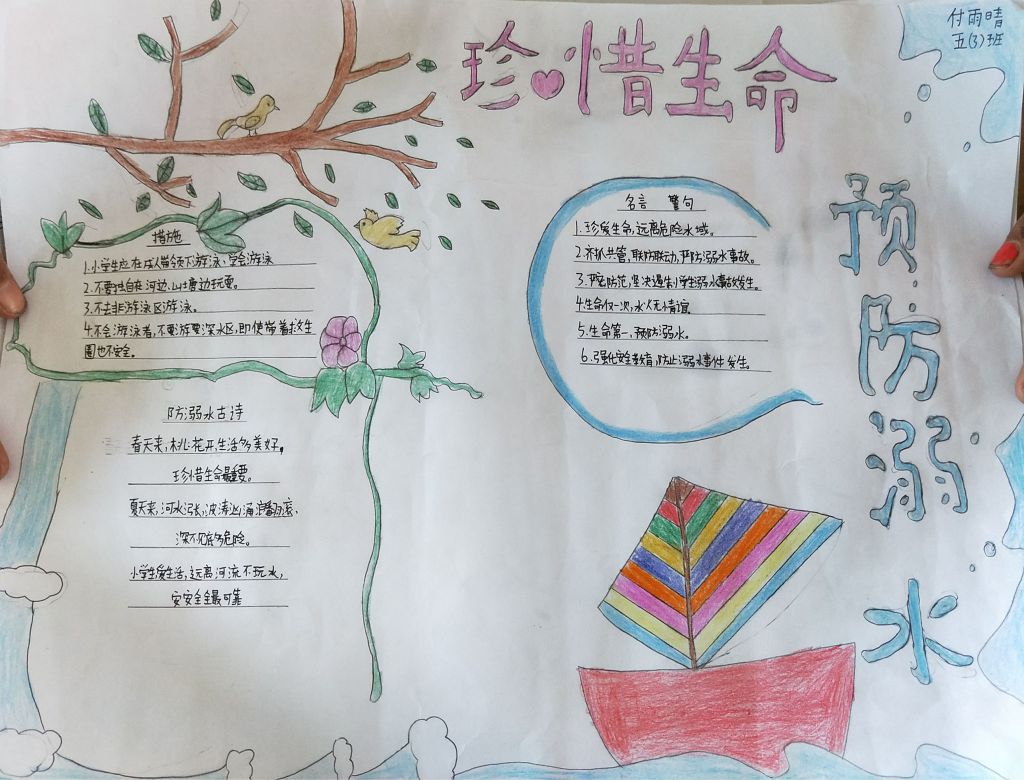 付雨晴
五(3)班
珍惜生命
预防溺水
措施
1.小学生应在成人带领下游泳、学会游泳
2.不要独自在河边、山塘边玩耍。
3.不去非游泳区游泳。
4.不会游泳者,不要游要深水区,即使带着救生
圈也不安全。
防溺水古诗
春天来,桃花开,生活多美好,
珍惜生命最重要。
夏天来,河水涨,波涛汹涌浪翻滚、
深不见底多危险。
小学生爱生活,远离河流不玩水,
安安全全最可靠
名言 警句
1.珍爱生命,远离危险水域。
2.齐抓共管,联防联动,严防溺水事故。
3.严密防范,坚决遏制小学生溺水事故发生。
4.生命仅一次,水火无情谊
5.生命第一、预防溺水。
6.强化安全教育,防止溺水事件发生。